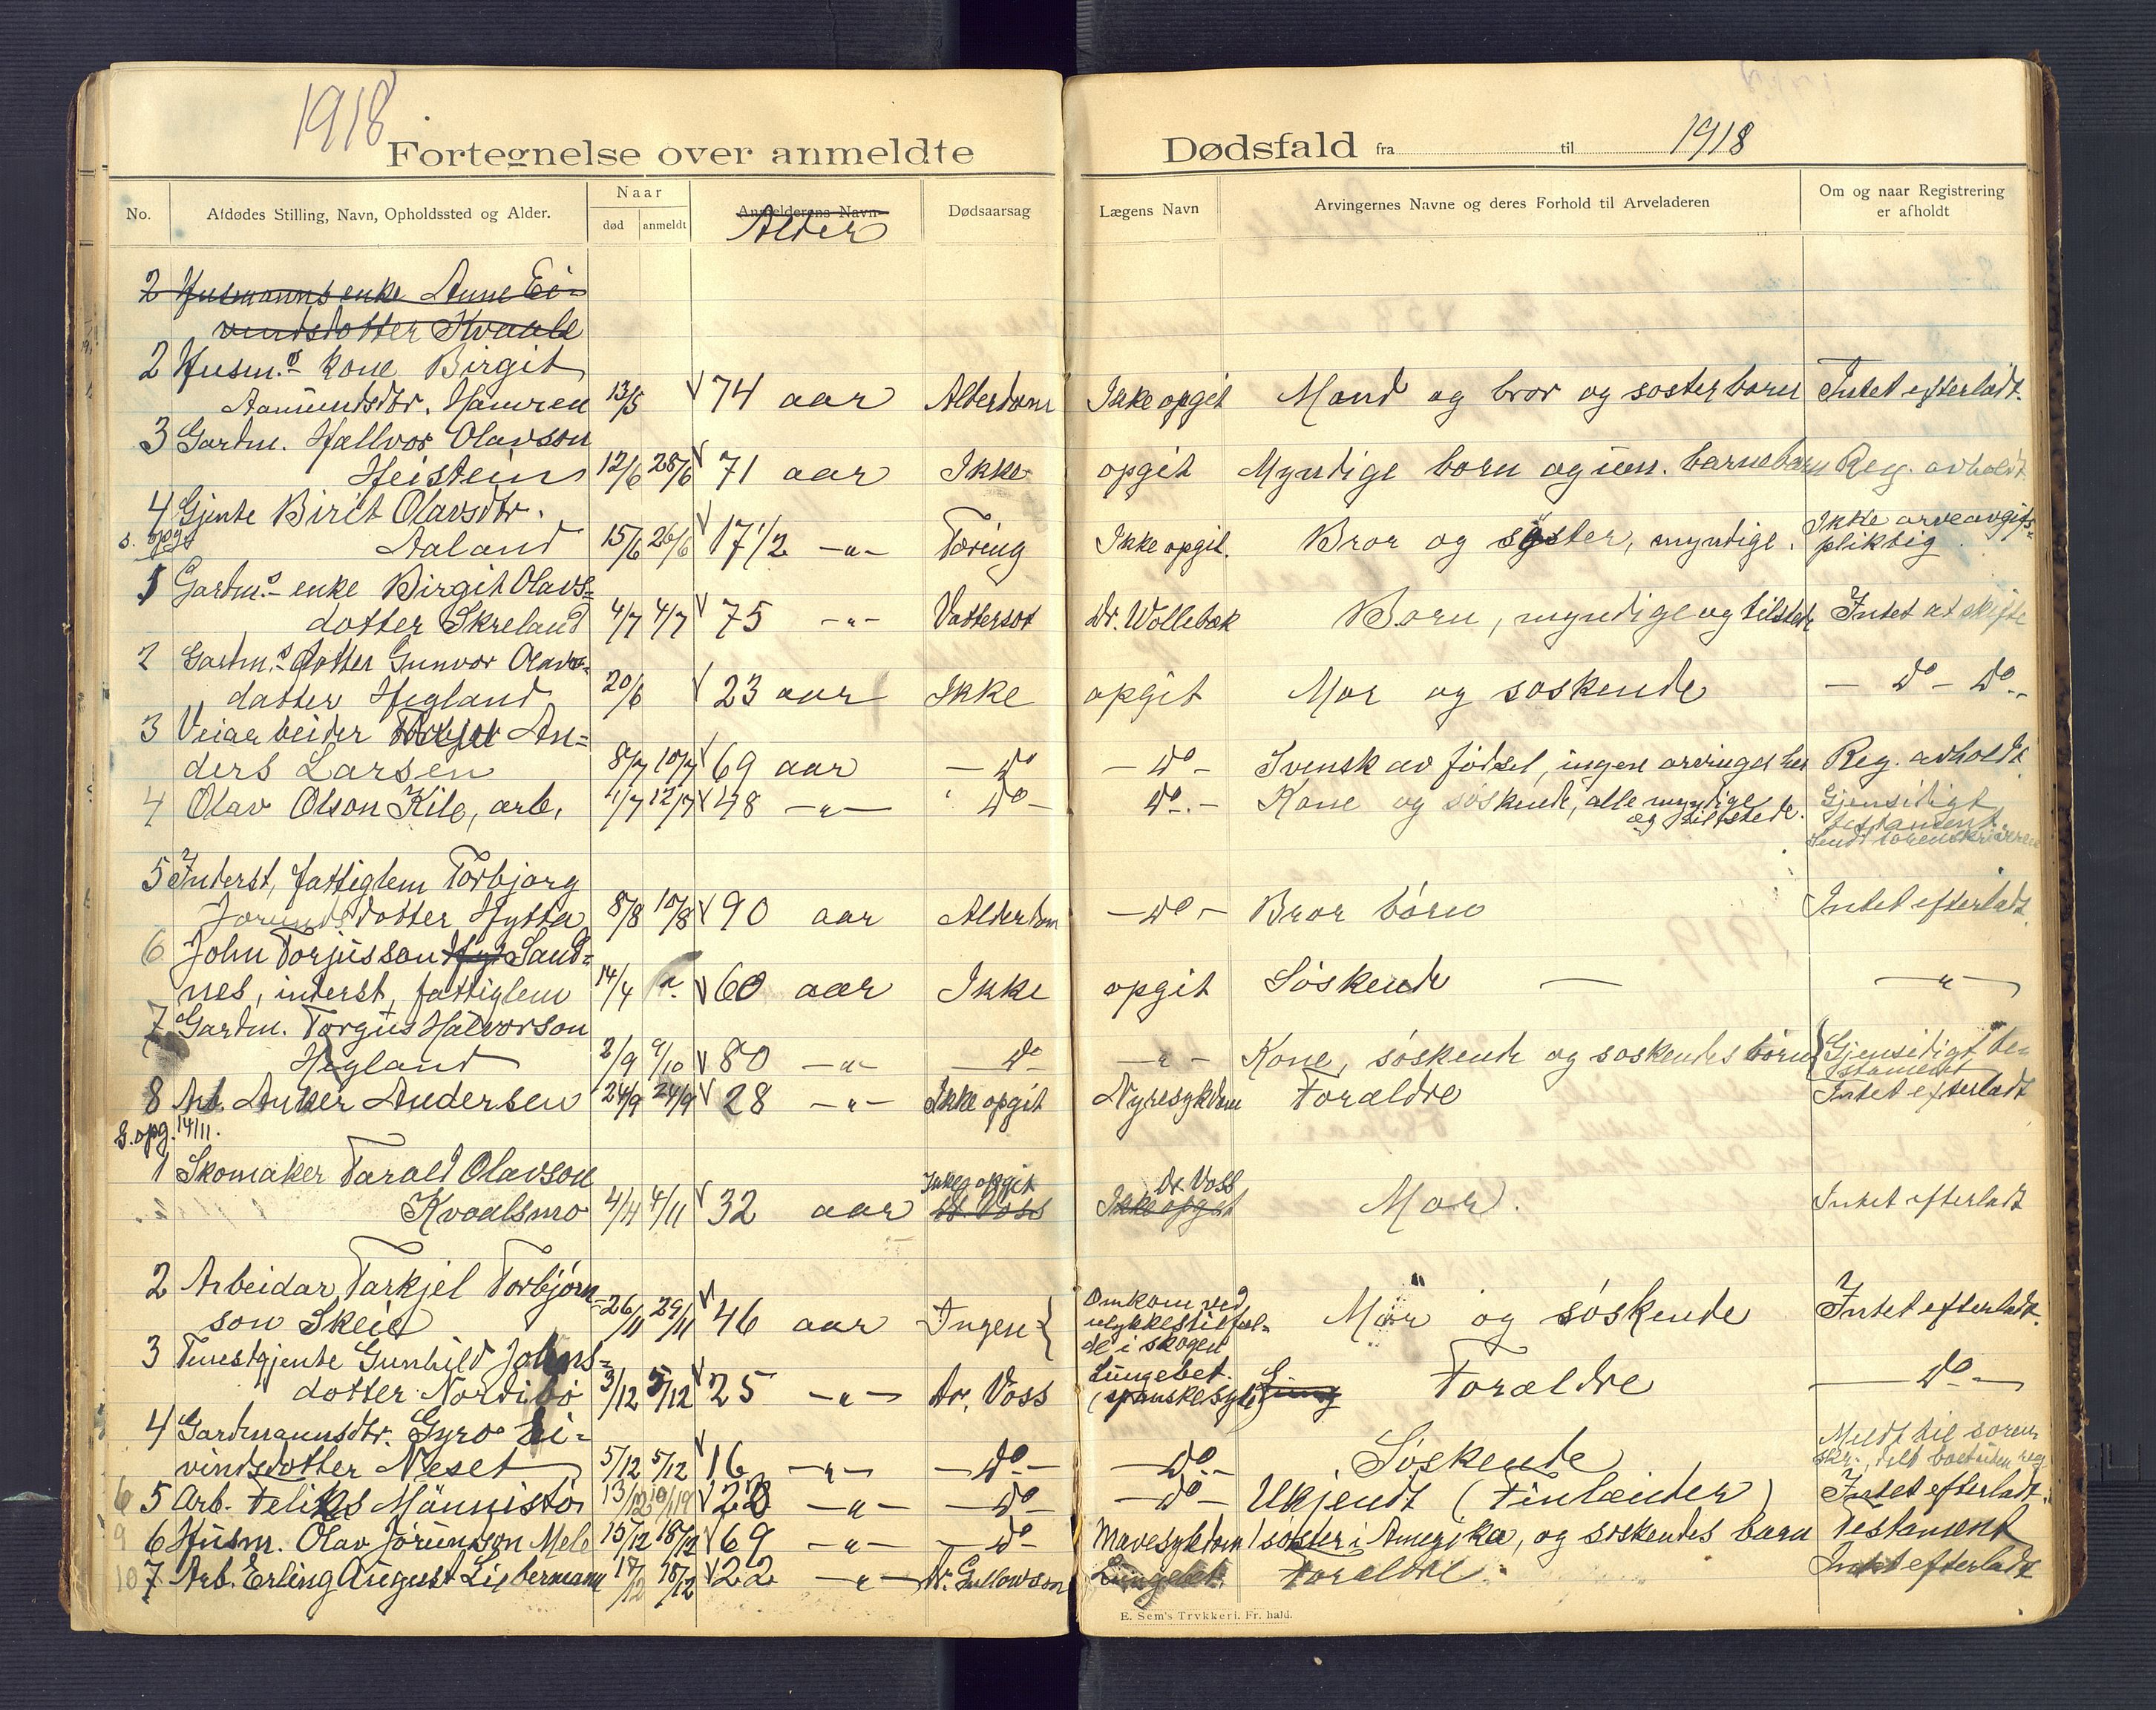 1918
Fortegnelse over anmeldte Dødsfald fra til 1918
No. Afdødes Stilling, Navn, Opholdssted og Alder. Naar død anmeldt Anmelderens Navn Alder Dødsaarsag Lægens Navn Arvingernes Navne og deres Forhold til Arveladeren Om og naar Registrering er afholdt
2 Husmanns enke Anne Ei-
vindsdotter Kvaale
2 Husm.s kone Birgit
Aamundsdtr. Hamren 13/5 74 aar Alderdom Ikke opgit Mand og bror og søsterbørn Intet efterladt.
3 Gardm. Hallvor Olavson
Heistein 12/6 28/6 71 aar Ikke opgit Myndige born og um. barneborn Reg. avholdt
4 Gjente Birit Olavsdtr.
Aaland 15/6 26/6 17 1/2 -"- Tæring Ikke opgit. Bror og syster, myndige. Ikke arveavgifs-
pliktig
1 Gardm.s enke Birgit Olavs-
dotter Skreland 4/7 4/7 75 -"- Vattersot Dr. Wollebæk Born, myndige og tilstede Intet at skifte
2 Gardm.s dotter Gunvor Olavs-
datter Hegland 20/6 23 aar Ikke opgit Mor og søskende - do - do -
3 Veiarbeider An-
ders Larsen 8/7 10/7 69 aar - do - do - Svensk av fødsel, ingen arvinger her Reg. avholdt
4 Olav Olson Kile, arb. 1/7 12/7 48 -"- do - do - Kone og søskende, alle myndige
og tilstede. Gjensidigt
testament.
Sendt sorenskriveren
5 Inderst, fattiglem Torbjorg
Jorundsdotter Hytta 8/8 10/8 90 aar Alderdom - do - Bror børn Intet efterladt
6 John Torjusson Sand-
nes, inderst, fattiglem 14/4 60 aar Ikke opgit Søskende - -"-
7 Gardm. Torgus Halvorson
Hegland 2/9 9/10 80 -"- do - -"- Kone, søskende og søskendes børn Gjensidigt te-
stament
8 Arb. Anker Andersen 24/9 24/9 28 -"- Ikke opgit Nyresykdom Forældre Intet efterladt
S. opg. 14/11.
1 Skomaker Tarald Olavson Ikke opgit Dr. Voss
Kvaalsmo 4/11 4/11 32 aar Dr. Voss Ikke opgit Mor. Intet efterladt
2 Arbeidar Tarkjel Torbjørn-
son Skeie 26/11 29/11 46 aar Ingen Omkom ved
ulykkestilfæl-
de i skogen Mor og søskende Intet efterladt.
3 Tenestgjente Gunhild Johns-
dotter Nordibø 3/12 5/12 25 -"- Dr. Voss Lungebet.
(spanskesyke) Forældre - do -
4 Gardmannsdtr. Gyro Ei-
vindsdotter Neset 5/12 5/12 16 -"- - do - - do - Søskende Meldt til soren
skr., delt boet uten reg
6 5 Arb. Feliks Männistö 13/12 28 -"- - do - - do - Ukjendt (Finlænder) Intet efterladt.
9 6 Husm. Olav Jørundson Mele 15/12 18/12 69 -"- - do - Mavesykdom 1 søster i Amerika, og søskendes barn Testament
10 7 Arb. Erling August Liebermann 17/12 18/12 22 -"- Dr. Gullowson Lungebet. Forældre. Intet efterladt
E. Sem's Trykkeri. Fr. hald.